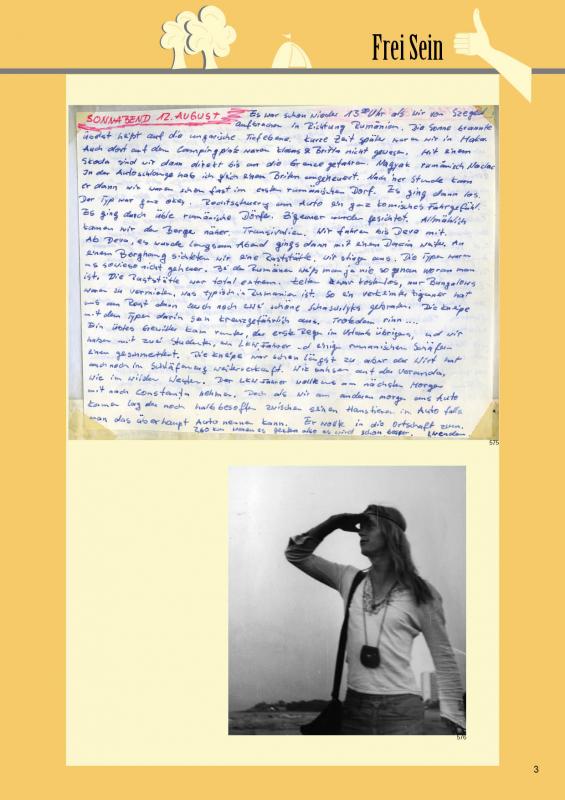 Frei Sein
SONNABEND 12. AUGUST Es war schon wieder 13 00 Uhr als wir von Szeged
aufbrachen in Richtung Rumänien. Die Sonne brannte
heiß auf die ungarische Tiefebene. Kurze Zeit später waren wir in Mako.
Auch dort auf dem Campingplatz waren Klaus & Britta nicht gewesen. Mit einem
Skoda sind wir dann direkt bis an die Grenze gefahren. Nagylak rumänisch Nadlac
In der Autoschlange hab ich gleich einen Briten angehauert. Nach 'ner Stunde kam
er dann wir waren schon fast im ersten rumänischen Dorf. Es ging dann los.
Der Typ war ganz okay. Rechtssteuerung am Auto ein ganz komisches Fahrgefühl.
Es ging durch üble rumänische Dörfer. Zigeuner wurden gesichtet. Allmählich
kamen wir den Bergen näher. Transilvanien. Wir fuhren bis Deva mit.
Ab Deva, es wurde langsam Abend gings dann mit einem Dacia weiter. An
einem Berghang sichteten wir eine Raststätte. Wir stiegen aus. Die Typen waren
uns sowieso nicht geheuer. Bei den Rumänen weiß man ja nie so genau woran man
ist. Die Raststätte war total extrem. Zelten kostenlos, nur Bungalows
waren zu vermieten, was typisch in Rumänien ist. So ein Zigeuner hat
uns am Rost dann auch noch zwei schöne Schaschlyks gebraten. Die Kneipe
mit den Typen darin sah kreuzgefährlich aus. Trotzdem rinn ....
Ein übles Gewitter kam runter, der erste Regen im Urlaub übrigens, und wir
haben mit zwei Studenten, ein LKW Fahrer und einigen rumänischen Schäfern
einen gesummelt. Die Kneipe war schon längst zu aber der Wirt hat
auch noch im Schlafanzug weiterverkauft. Wir saßen auf der Veranda,
wie im wilden Westen. Der LKW Fahrer wollte uns am nächsten Morgen
mit nach Constanta nehmen. Doch als wir am anderen morgen ans Auto
kamen lag der noch halbbesoffen zwischen seinen Hanteln im Auto falls
man das überhaupt Auto nennen kann. Er wollte in die Ortschaft zum.
260 km waren es gestern also es wird schon besser.
575
576
3